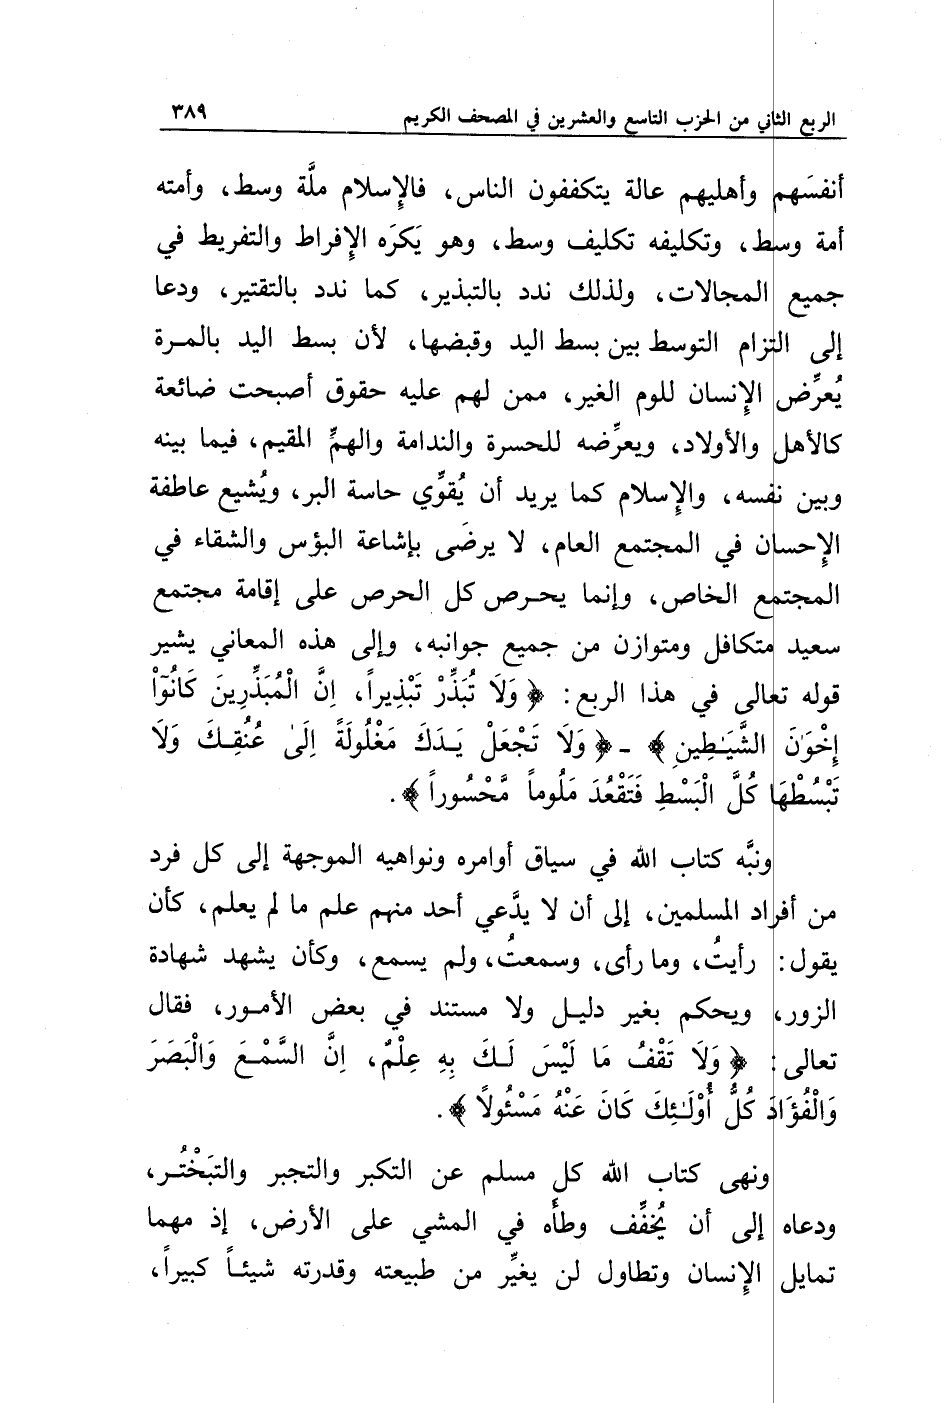 الربع الثاني من الحزب التاسع والعشرين في المصحف الكريم ٣٨٩
أنفسَهم وأهليهم عالة يتكففون الناس، فالإسلام ملَّة وسط، وأمته
أمة وسط، وتكليفه تكليف وسط، وهو يَكرَه الإفراط والتفريط في
جميع المجالات، ولذلك ندد بالتبذير، كما ندد بالتقتير، ودعا
إلى التزام التوسط بين بسط اليد وقبضها، لأن بسط اليد بالمرة
يُعرِّض الإنسان للوم الغير، ممن لهم عليه حقوق أصبحت ضائعة
كالأهل والأولاد، ويعرِّضه للحسرة والندامة والهمِّ المقيم، فيما بينه
وبين نفسه، والإسلام كما يريد أن يُقوِّي حاسة البر، ويُشيع عاطفة
الإحسان في المجتمع العام، لا يرضَى بإشاعة البؤس والشقاء في
المجتمع الخاص، وإنما يحرص كل الحرص على إقامة مجتمع
سعيد متكافل ومتوازن من جميع جوانبه، وإلى هذه المعاني يشير
قوله تعالى في هذا الربع: ﴿ وَلَا تُبَذِّرْ تَبْذِيراً، اِنَّ الْمُبَذِّرِينَ كَانُوٓاْ
إِخْوَٰنَ الشَّيَـٰطِينِ ﴾ - ﴿ وَلَا تَجْعَلْ يَدَكَ مَغْلُولَةً اِلَىٰ عُنُقِكَ وَلَا
تَبْسُطْهَا كُلَّ الْبَسْطِ فَتَقْعُدَ مَلُوماً مَّحْسُوراً ﴾.
ونبَّه كتاب الله في سياق أوامره ونواهيه الموجهة إلى كل فرد
من أفراد المسلمين، إلى أن لا يدَّعي أحد منهم علم ما لم يعلم، كأن
يقول: رأيتُ، وما رأى، وسمعتُ، ولم يسمع، وكأن يشهد شهادة
الزور، ويحكم بغير دليل ولا مستند في بعض الأمور، فقال
تعالى: ﴿ وَلَا تَقْفُ مَا لَيْسَ لَكَ بِهِ عِلْمٌ، اِنَّ السَّمْعَ وَالْبَصَرَ
وَالْفُؤَادَ كُلُّ أُوْلَـٰئِكَ كَانَ عَنْهُ مَسْئُولاً ﴾.
ونهى كتاب الله كل مسلم عن التكبر والتجبر والتبَخْتُر،
ودعاه إلى أن يُخفِّف وطأَه في المشي على الأرض، إذ مهما
تمايل الإنسان وتطاول لن يغيِّر من طبيعته وقدرته شيئاً كبيراً،